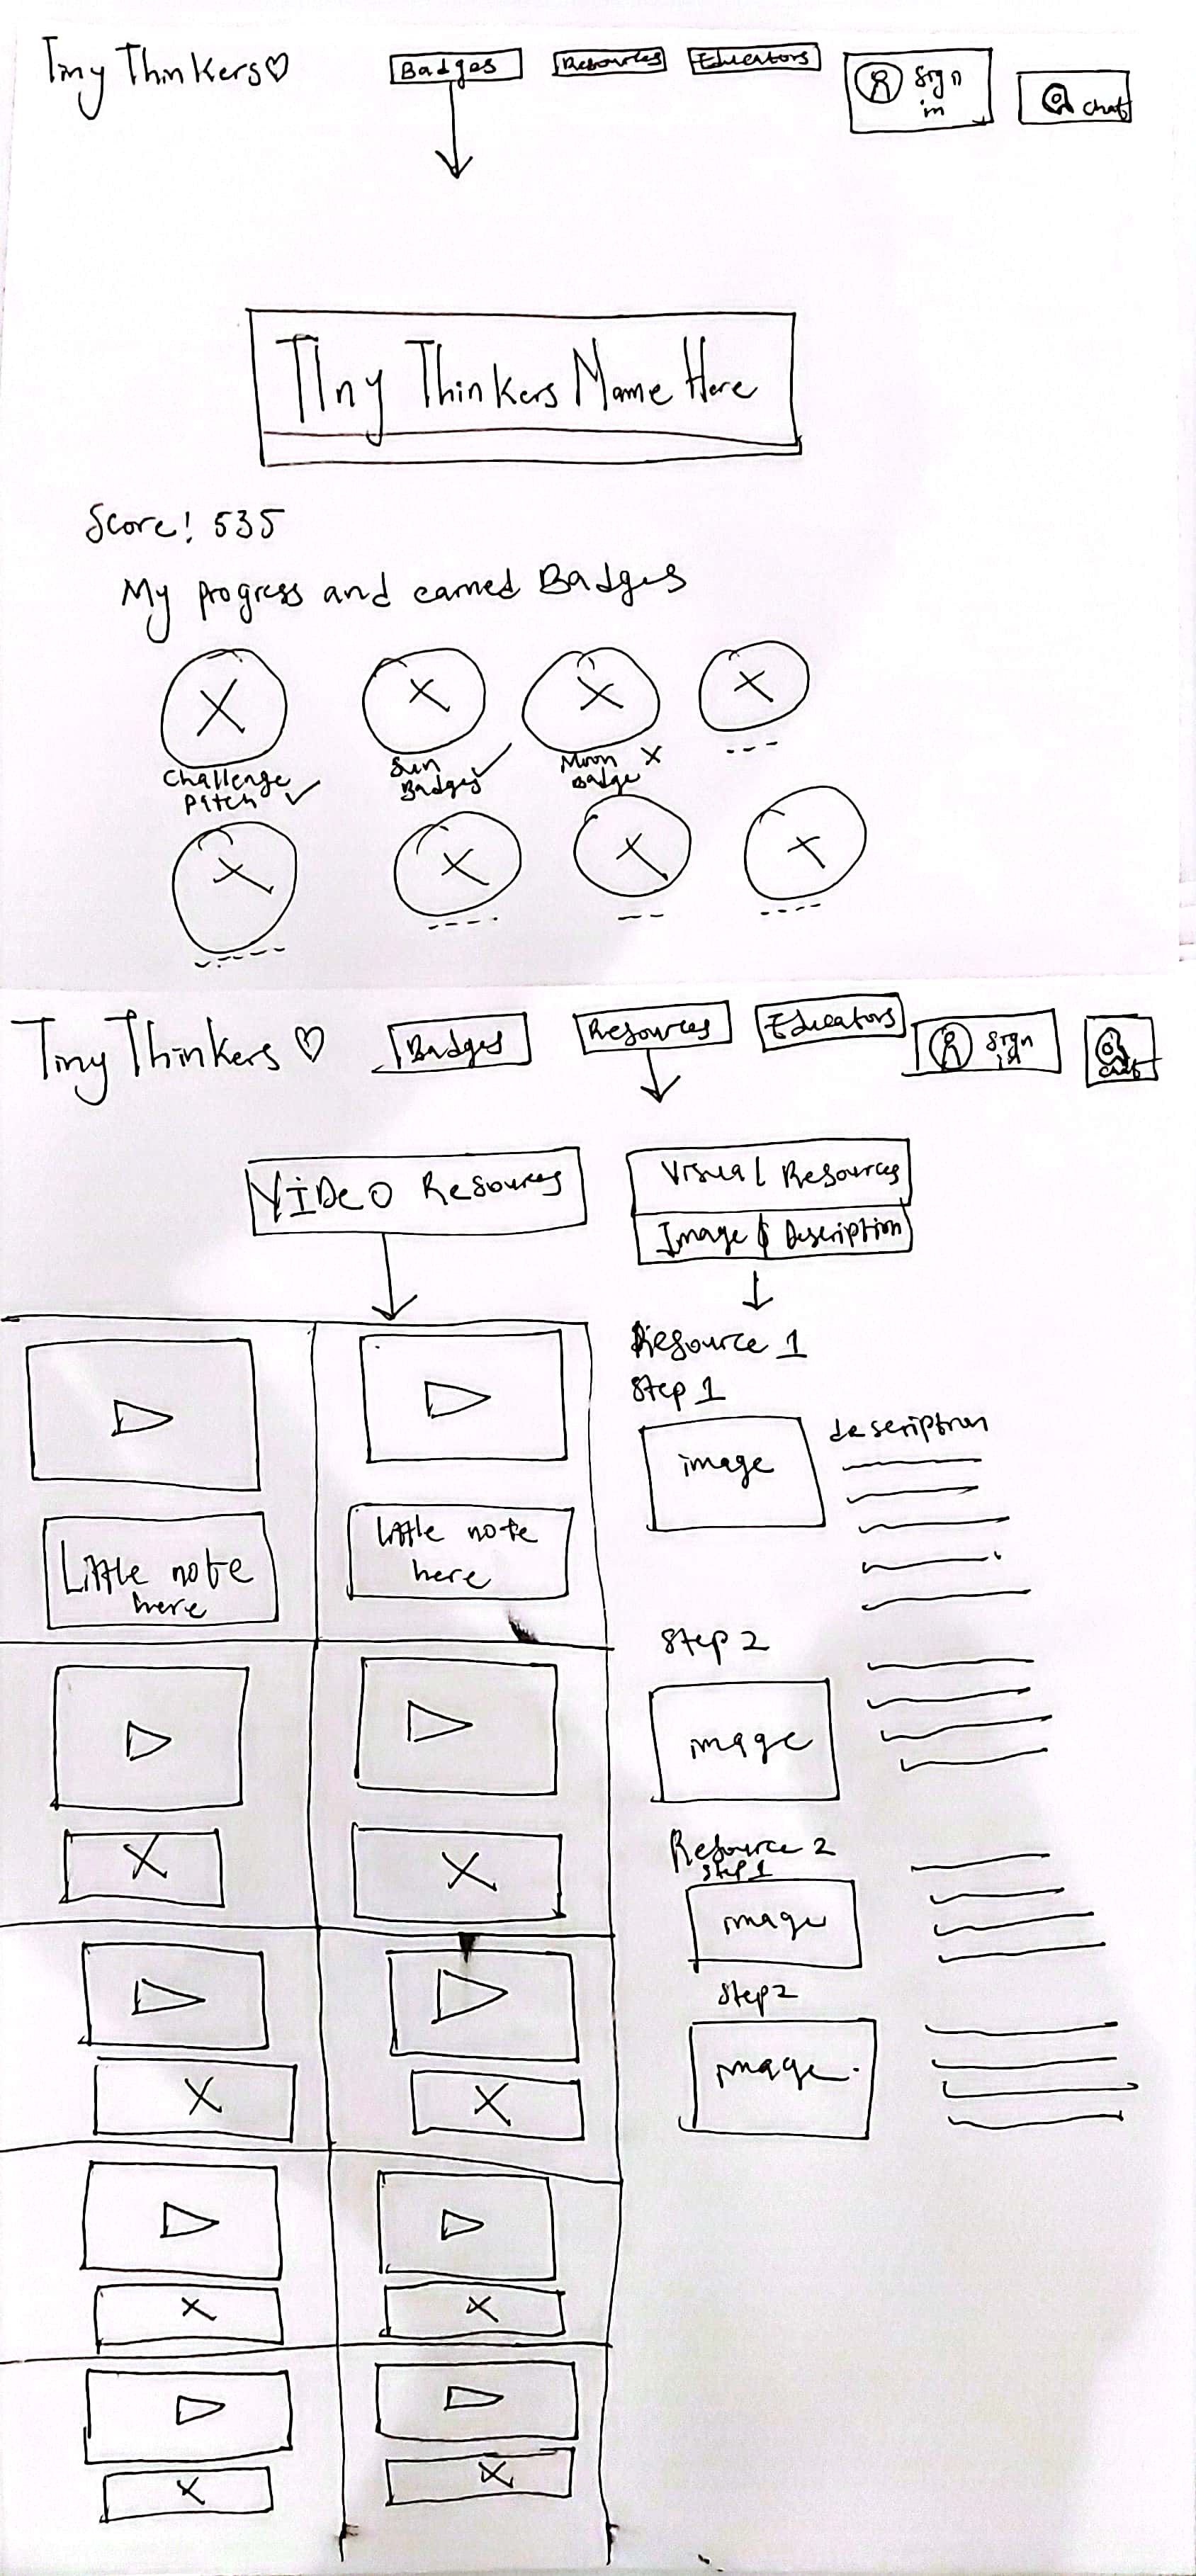 Tiny Thinkers♡
Badges
Resources
Educators
Sign
in
chat
TIny Thinkers Name Here
Score! 535
My progress and earned Badges
Challenge
Patch ✓
Sun
Badges ✓
Moon
Badge X
Tiny Thinkers ♡
Badges
Resources
Educators
Sign
in
chat
VIDEO Resources
Visual Resources
Image & Description
Resource 1
Step 1
image
description
Little note
here
Little note
here
Step 2
image
Resource 2
Step 1
image
Step 2
image